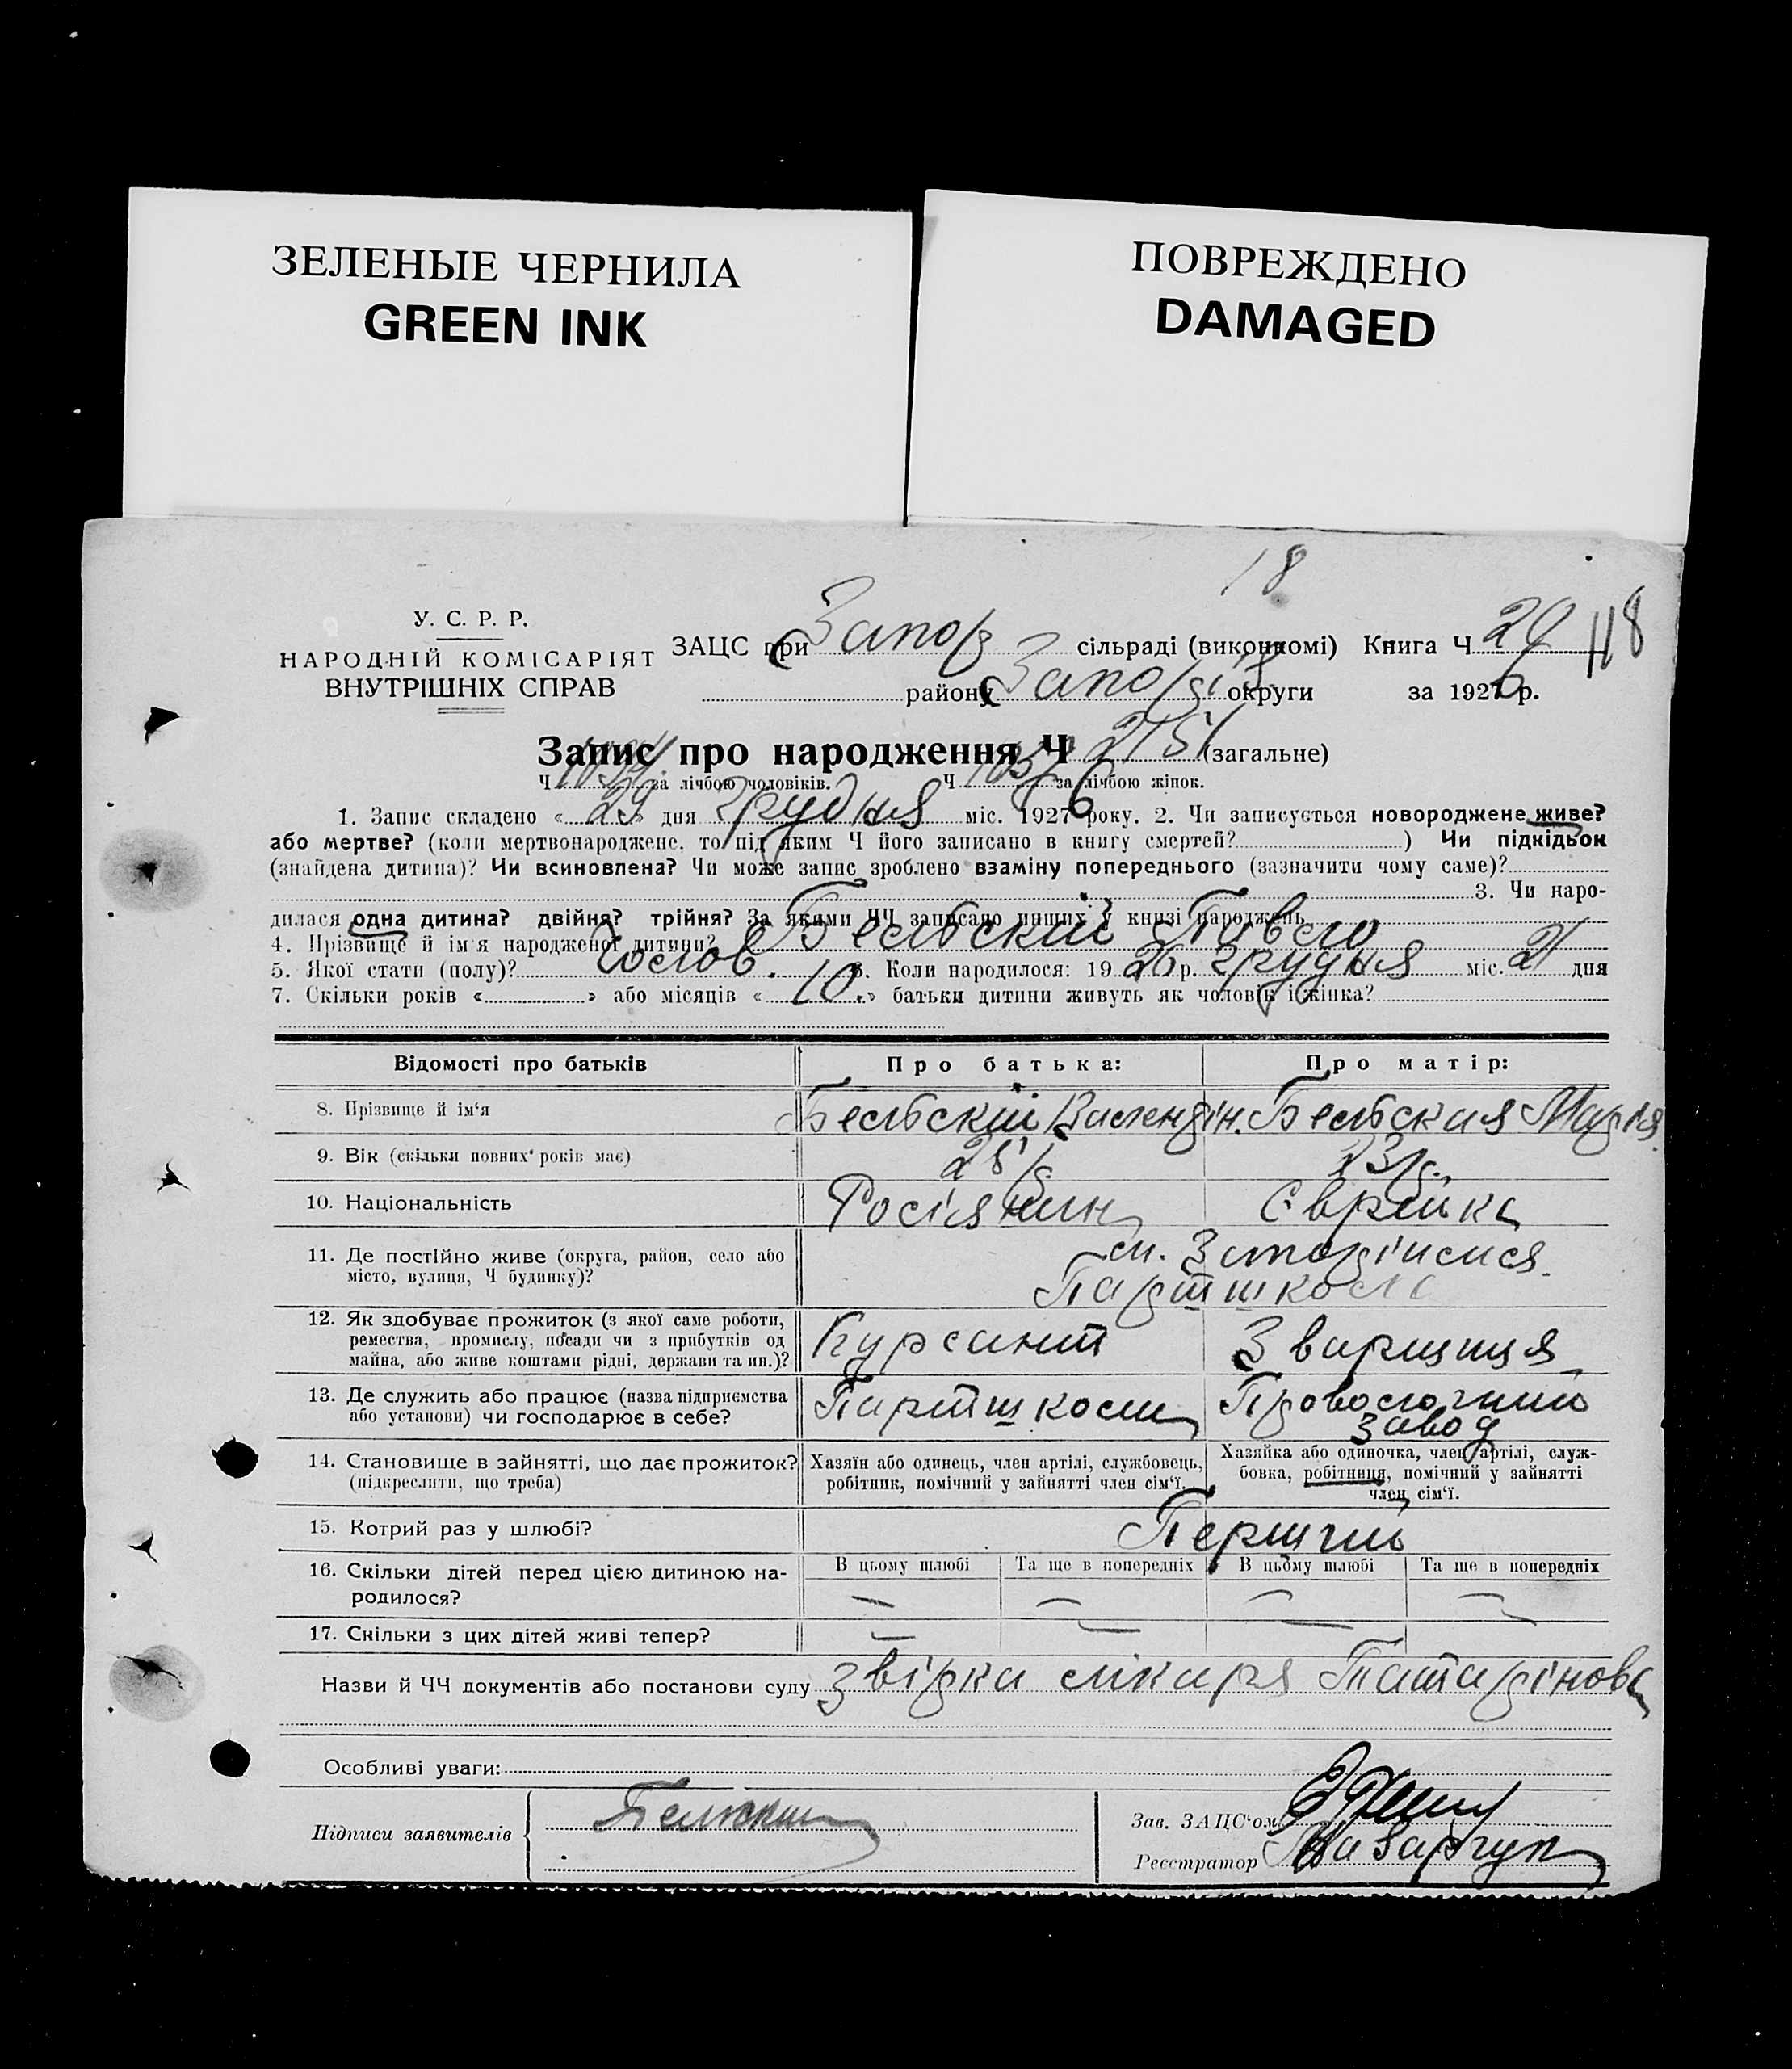 ЗЕЛЕНЫЕ ЧЕРНИЛА
GREEN INK
ПОВРЕЖДЕНО
DAMAGED
18
У. С. Р. Р.
НАРОДНІЙ КОМІСАРІЯТ
ВНУТРІШНІХ СПРАВ
ЗАЦС при Запор сільраді (виконкомі) Книга Ч 29 118
району Запоріз округи за 1926 р.
Запис про народження Ч 2151 (загальне)
Ч за лічбою чоловіків. Ч за лічбою жінок.
1. Запис складено «29» дня грудня міс. 1926 року. 2. Чи записується новороджене живе?
або мертве? (коли мертвонароджене, то під яким Ч його записано в книгу смертей? ) Чи підкідьок
(знайдена дитина)? Чи всиновлена? Чи може запис зроблено взаміну попереднього (зазначити чому саме)?
3. Чи наро-
дилася одна дитина? двійня? трійня? За якими ЧЧ записано инших у книзі народжень
4. Прізвище й ім'я народженої дитини? Бельський Павло
5. Якої стати (полу)? Чолов. 6. Коли народилося: 1926 р. грудня міс. 21 дня
7. Скільки років « » або місяців «10.» батьки дитини живуть як чоловік і жінка?
Відомості про батьків Про батька: Про матір:
8. Прізвище й ім'я Бельский Валентін. Бельская Марія
9. Вік (скільки повних років має) 25 р. 23 р.
10. Національність Росіянин Єврейка
11. Де постійно живе (округа, район, село або
місто, вулиця, Ч будинку)? м. Запоріжжя
Партшкола
12. Як здобуває прожиток (з якої саме роботи,
ремества, промислу, посади чи з прибутків од
майна, або живе коштами рідні, держави та ин.)? Курсант Зварщиця
13. Де служить або працює (назва підприємства
або установи) чи господарює в себе? Партшколи Проволочний
завод
14. Становище в зайнятті, що дає прожиток?
(підкреслити, що треба)
Хазяїн або одинець, член артілі, службовець,
робітник, помічний у зайнятті член сім'ї.
Хазяйка або одиночка, член артілі, служ-
бовка, робітниця, помічний у зайнятті
член сім'ї.
15. Котрий раз у шлюбі? Перший
16. Скільки дітей перед цією дитиною на-
родилося?
В цьому шлюбі Та ще в попередніх В цьому шлюбі Та ще в попередніх
— — — —
17. Скільки з цих дітей живі тепер? — —
Назви й ЧЧ документів або постанови суду звірка лікаря Татарінова
Особливі уваги:
Підписи заявителів Бельский
Зав. ЗАЦС'ом
Реєстратор Назарчук